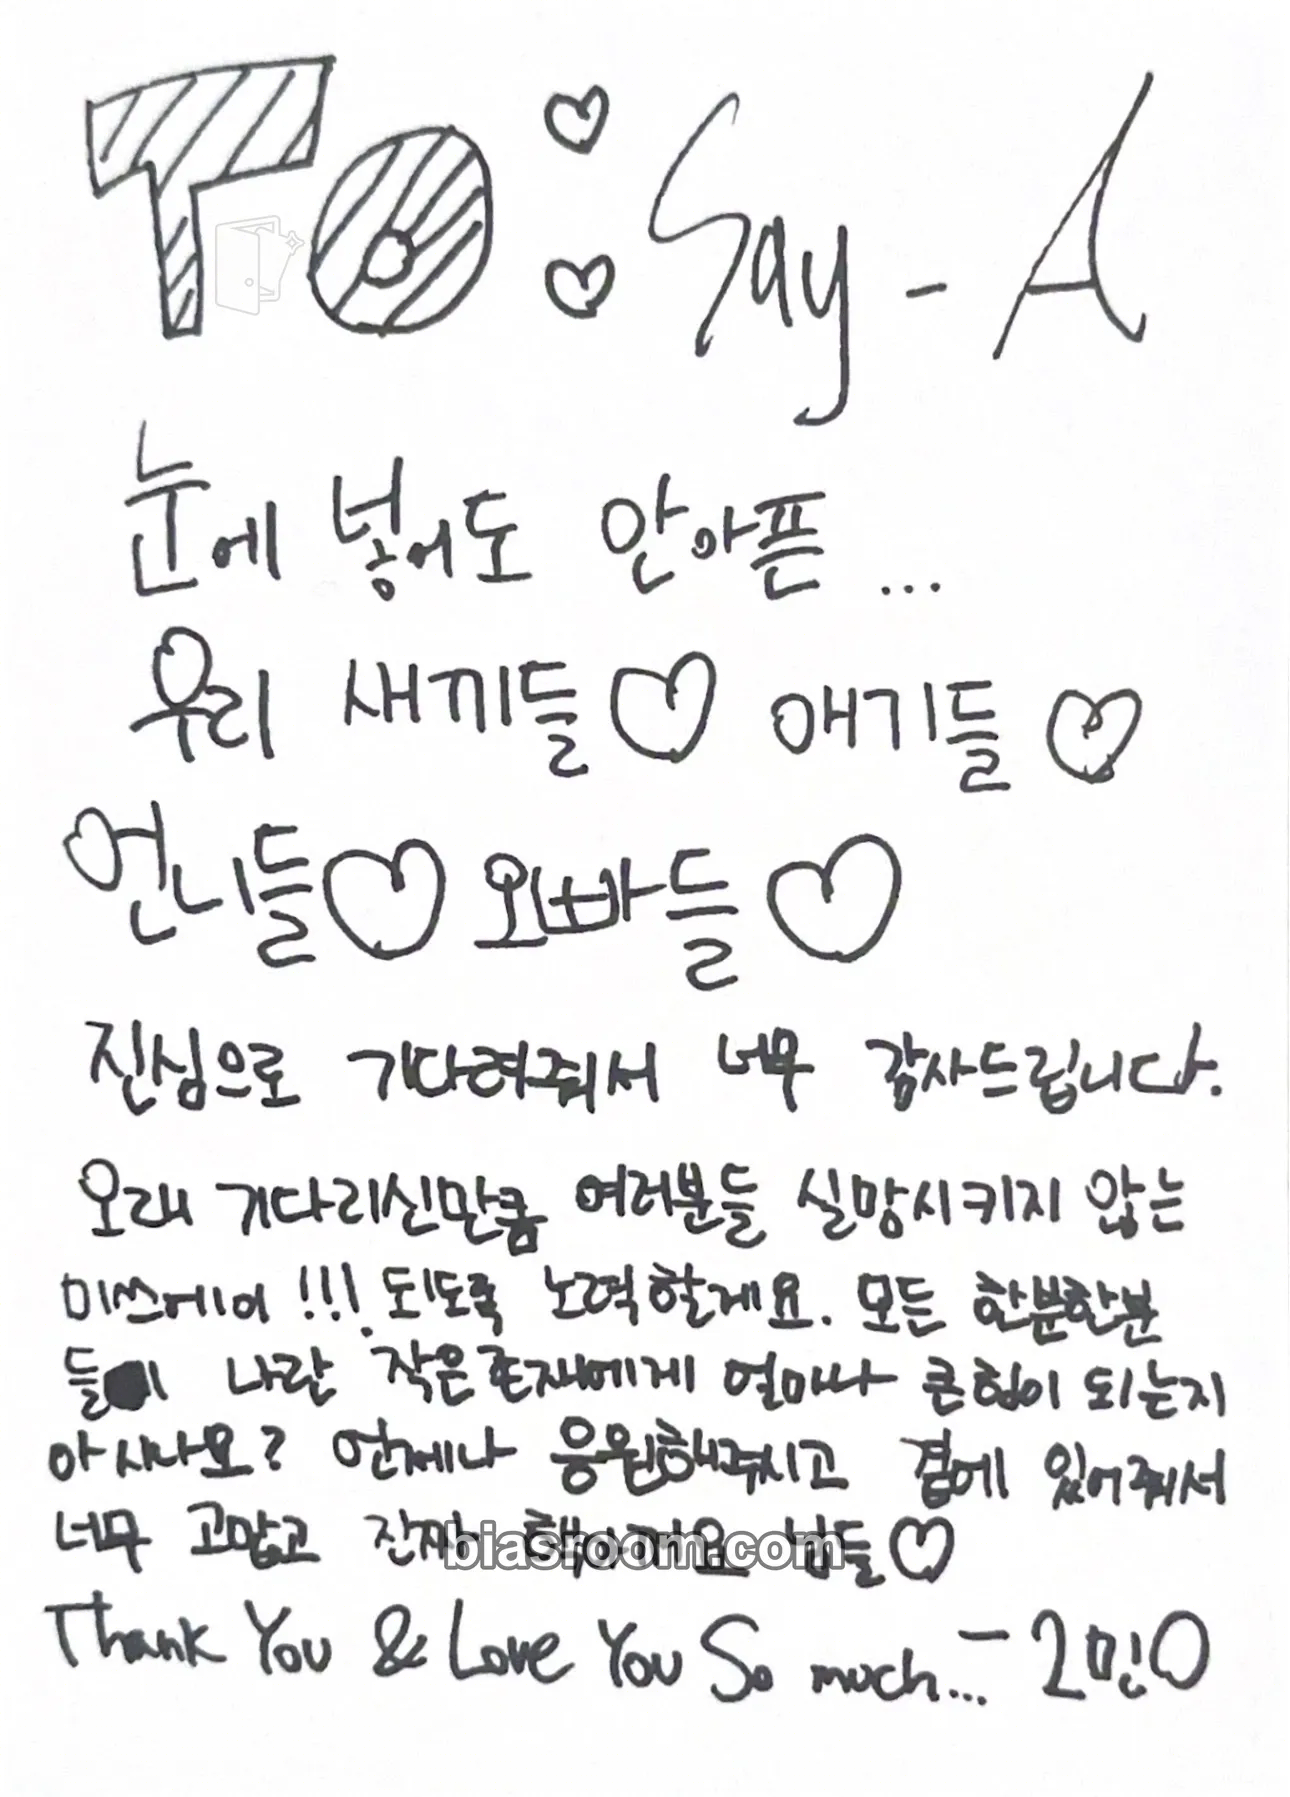 TO : Say - A
눈에 넣어도 안아픈 ...
우리 새끼들♡ 애기들♡
언니들♡ 오빠들♡
진심으로 기다려줘서 너무 감사드립니다.
오래 기다리신만큼 여러분들 실망시키지 않는
미쓰에이!!! 되도록 노력할게요. 모든 한분한분
들이 나란 작은존재에게 얼마나 큰힘이 되는지
아시나요? 언제나 응원해주시고 곁에 있어줘서
너무 고맙고 진짜 님들♡
biasroom.com
Thank You & Love You So much... - 2민0